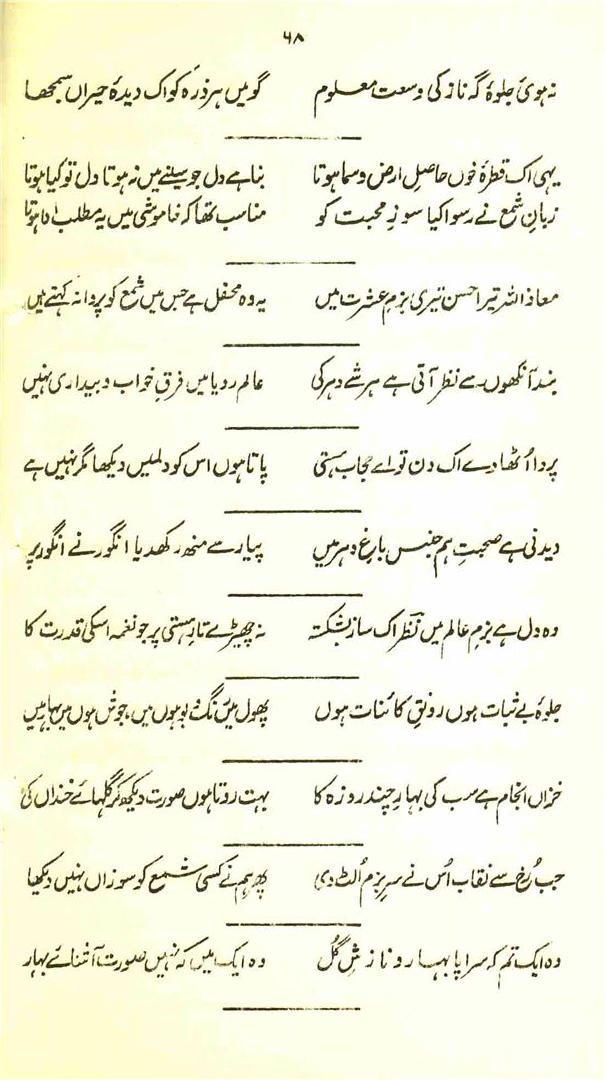 ۶۸
نہ ہوئی جلوہ گہ ناز کی وسعت معلوم گو میں ہر ذرہ کو اک دیدۂ حیراں سمجھا
یہی اک قطرۂ خوں حاصلِ ارض و سما ہوتا بنا ہے دل جو سینے میں نہ ہوتا دل تو کیا ہوتا
زبانِ شمع نے رسوا کیا سوزِ محبت کو مناسب تھا کہ خاموشی میں یہ مطلب ادا ہوتا
معاذ اللہ تیرا حسن تیری بزمِ عشرت میں یہ وہ محفل ہے جس میں شمع کو پروانہ کہتے ہیں
بند آنکھوں سے نظر آتی ہے ہر شے دہر کی عالمِ رویا میں فرقِ خواب و بیداری نہیں
پردا اُٹھا دے اک دن تو اے حجابِ ہستی پاتا ہوں اس کو دل میں دیکھا مگر نہیں ہے
دیدنی ہے صحبتِ ہم جنس باغِ دہر میں پیار سے منھ رکھدیا انگور نے انگور پر
وہ دل ہے بزمِ عالم میں نظرؔ اک سازِ بشکستہ نہ چھیڑے تارِ ہستی پر جو نغمہ اسکی قدرت کا
جلوۂ بے ثبات ہوں رونقِ کائنات ہوں پھول میں رنگ و بو ہوں میں، جوش ہوں میں بہار میں
خزاں انجام ہے سب کی بہارِ چند روزہ کا بہت روتا ہوں صورت دیکھ کر گلہائے خنداں کی
جب رُخ سے نقاب اُس نے سرِ بزم اُلٹ دی پھر ہم نے کسی شمع کو سوزاں نہیں دیکھا
وہ ایک تم کہ سراپا بہار و نازشِ گُل وہ ایک میں کہ نہیں صورت آشنائے بہار